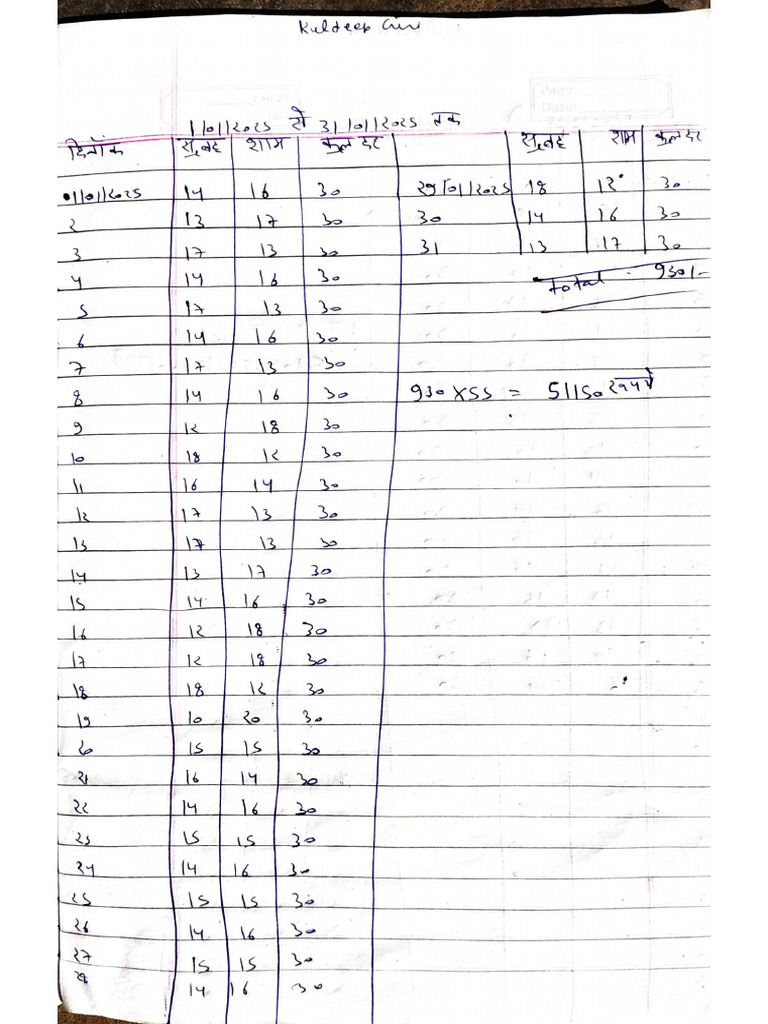 Kuldeep Giri
Page:
Date:
1/01/2025 से 31/01/2025 तक
दिनाँक सुबह शाम कुल दर
01/01/2025 14 16 30
2 13 17 30
3 17 13 30
4 14 16 30
5 17 13 30
6 14 16 30
7 17 13 30
8 14 16 30
9 12 18 30
10 18 12 30
11 16 14 30
12 17 13 30
13 17 13 30
14 13 17 30
15 14 16 30
16 12 18 30
17 12 18 30
18 18 12 30
19 10 20 30
20 15 15 30
21 16 14 30
22 14 16 30
23 15 15 30
24 14 16 30
25 15 15 30
26 14 16 30
27 15 15 30
28 14 16 30
सुबह शाम कुल दर
29/01/2025 18 12 30
30 14 16 30
31 13 17 30
Total 930/-
930 X 55 = 51150 रुपये